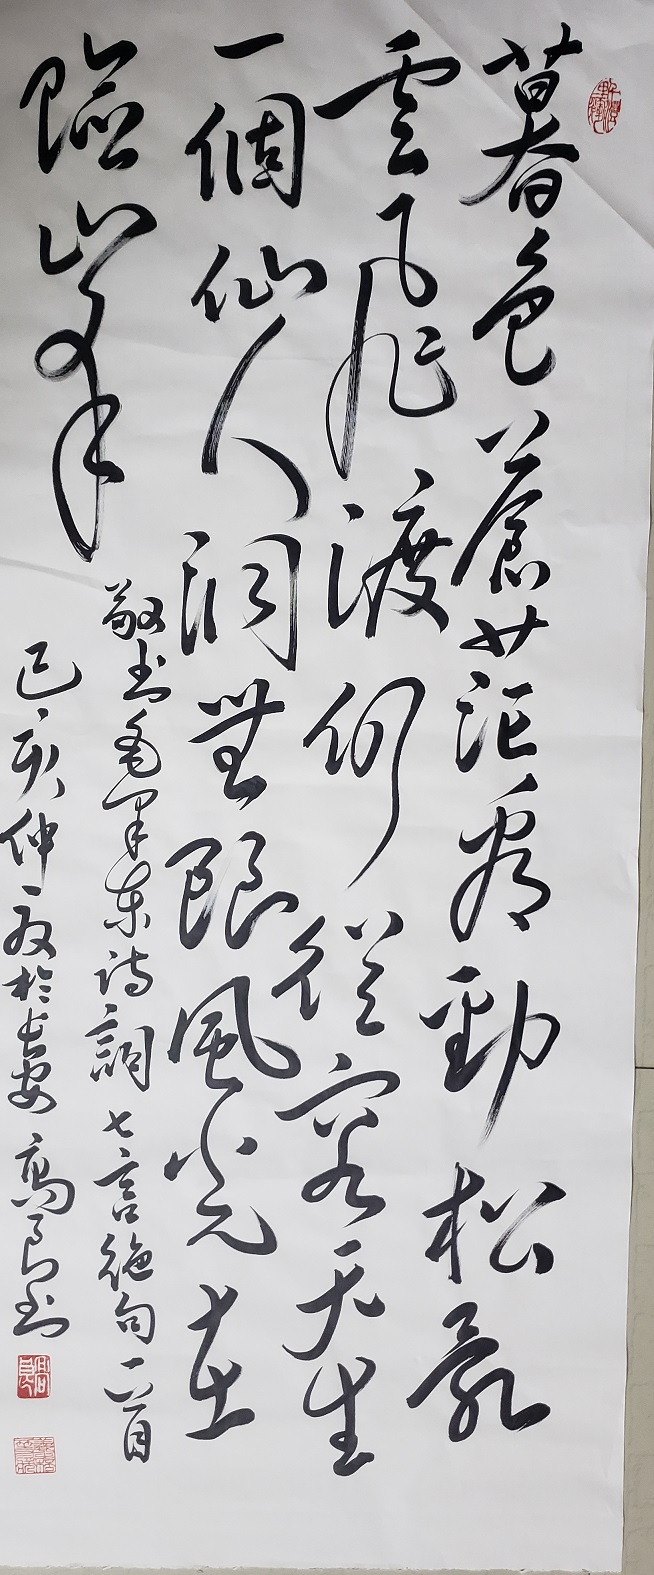 暮色蒼茫看勁松亂
雲飛渡仍從容天生
一個仙人洞無限風光在
險峰
敬書毛澤東詩詞七言絕句一首
己亥仲夏於長安 高良書